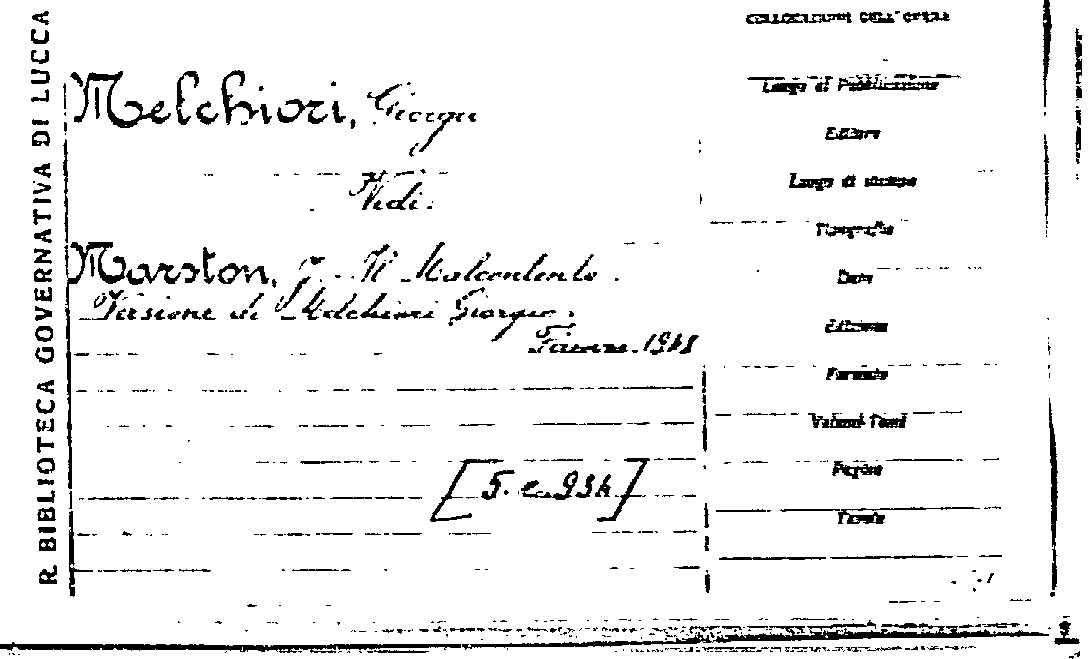 R. BIBLIOTECA GOVERNATIVA DI LUCCA
Melchiori, Giorgio
Vedi:
Marston, J. Il Malcontento.
Versione di Melchiori Giorgio.
Firenze. 1948
[5. e. 934]
COLLOCAZIONE DELL'OPERA
Luogo di Pubblicazione
Editore
Luogo di stampa
Tipografia
Data
Edizione
Formato
Volumi-Tomi
Pagine
Tavole